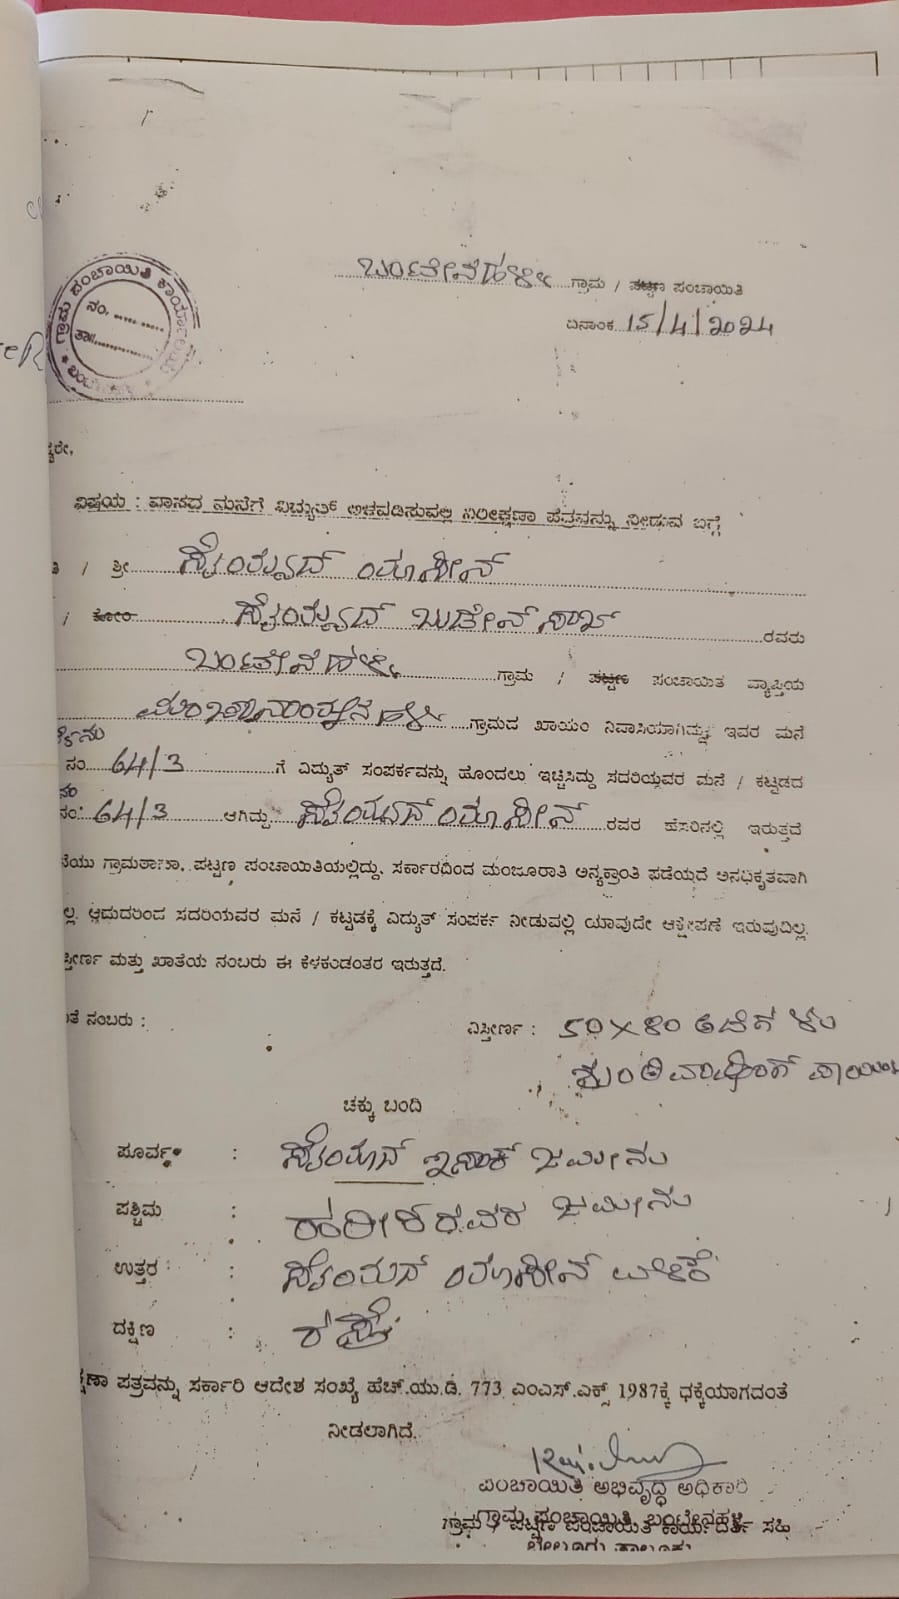 ಬಂಟೇನಹಳ್ಳಿ ಗ್ರಾಮ / ಪಟ್ಟಣ ಪಂಚಾಯಿತಿ
ದಿನಾಂಕ 15/4/2024
ಗ್ರಾಮ ಪಂಚಾಯಿತಿ ಕಾರ್ಯಾಲಯ
ನಂ. ............
ತಾ॥..............
ವಿಷಯ : ವಾಸದ ಮನೆಗೆ ವಿದ್ಯುತ್ ಅಳವಡಿಸುವಲ್ಲಿ ನಿರೀಕ್ಷಣಾ ಪತ್ರವನ್ನು ನೀಡುವ ಬಗ್ಗೆ
/ ಶ್ರೀ ಸೈಯ್ಯದ್ ಯಾಸೀನ್
/ ಕೋಂ ಸೈಯ್ಯದ್ ಬುಡೇನ್ ಸಾಬ್ ರವರು
ಬಂಟೇನಹಳ್ಳಿ ಗ್ರಾಮ / ಪಟ್ಟಣ ಪಂಚಾಯಿತ ವ್ಯಾಪ್ತಿಯ
ಗ್ರಾಮದ ಖಾಯಂ ನಿವಾಸಿಯಾಗಿದ್ದು, ಇವರ ಮನೆ
ನಂ. 64/3 ಗೆ ವಿದ್ಯುತ್ ಸಂಪರ್ಕವನ್ನು ಹೊಂದಲು ಇಚ್ಚಿಸಿದ್ದು ಸದರಿಯವರ ಮನೆ / ಕಟ್ಟಡದ
ನಂ. 64/3 ಆಗಿದ್ದು ಸೈಯದ್ ಯಾಸೀನ್ ರವರ ಹೆಸರಿನಲ್ಲಿ ಇರುತ್ತದೆ
ಗ್ರಾಮಠಾಣಾ, ಪಟ್ಟಣ ಪಂಚಾಯಿತಿಯಲ್ಲಿದ್ದು, ಸರ್ಕಾರದಿಂದ ಮಂಜೂರಾತಿ ಅನ್ಯಕ್ರಾಂತಿ ಪಡೆಯದೆ ಅನಧಿಕೃತವಾಗಿ
ಲ್ಲ. ಆದುದರಿಂದ ಸದರಿಯವರ ಮನೆ / ಕಟ್ಟಡಕ್ಕೆ ವಿದ್ಯುತ್ ಸಂಪರ್ಕ ನೀಡುವಲ್ಲಿ ಯಾವುದೇ ಆಕ್ಷೇಪಣೆ ಇರುವುದಿಲ್ಲ.
ಸ್ತೀರ್ಣ ಮತ್ತು ಖಾತೆಯ ನಂಬರು ಈ ಕೆಳಕಂಡಂತರ ಇರುತ್ತದೆ.
ತೆ ನಂಬರು :
ವಿಸ್ತೀರ್ಣ : 50×80 ಅಡಿಗಳು
ಚಕ್ಕು ಬಂದಿ
ಪೂರ್ವ : ಸೈಯದ್ ಇಸಾಕ್ ಜಮೀನು
ಪಶ್ಚಿಮ : ಹರೀಶರವರ ಜಮೀನು
ಉತ್ತರ : ಸೈಯದ್ ಯಾಸೀನ್
ದಕ್ಷಿಣ : ರಸ್ತೆ
ಕ್ಷಣಾ ಪತ್ರವನ್ನು ಸರ್ಕಾರಿ ಆದೇಶ ಸಂಖ್ಯೆ ಹೆಚ್.ಯು.ಡಿ. 773 ಎಂಎಸ್.ಎಕ್ಸ್ 1987ಕ್ಕೆ ಧಕ್ಕೆಯಾಗದಂತೆ
ನೀಡಲಾಗಿದೆ.
ಪಂಚಾಯಿತಿ ಅಭಿವೃದ್ಧಿ ಅಧಿಕಾರಿ
ಗ್ರಾಮ ಪಂಚಾಯಿತಿ, ಬಂಟೇನಹಳ್ಳಿ
ಗ್ರಾಮ / ಪಟ್ಟಣ ಪಂಚಾಯಿತ ಕಾರ್ಯದರ್ಶಿ ಸಹಿ
ಬೇಲೂರು ತಾಲ್ಲೂಕು